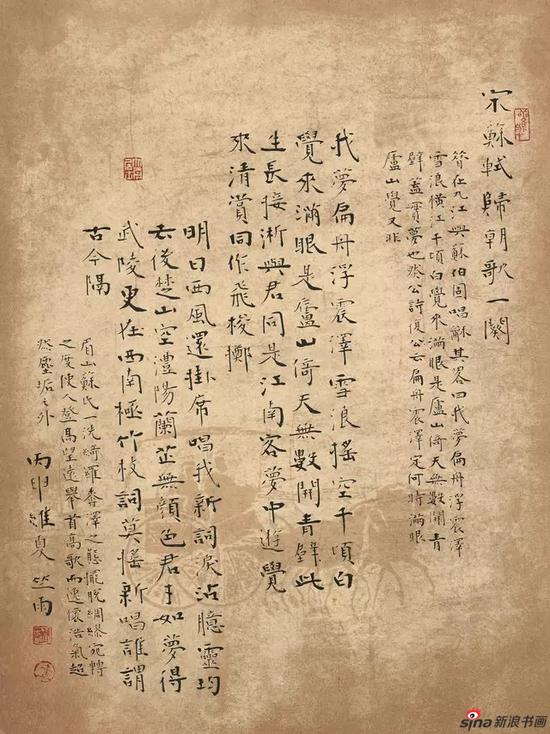 宋蘇軾歸朝歌一闋
昔在九江與蘇伯固唱龢其畧曰我夢扁舟浮震澤
雪浪橫江千頃白覺來滿眼是廬山倚天無數開青
壁蓋實夢也然公詩復公云扁舟震澤定何時滿眼
廬山覺又非
我夢扁舟浮震澤雪浪搖空千頃白
覺來滿眼是廬山倚天無數開青壁此
生長接淅與君同是江南客夢中遊覺
來清賞同作飛梭擲
明日西風還掛席唱我新詞淚沾臆靈均
去後楚山空澧陽蘭芷無顏色君才如夢得
武陵更在西南極竹枝詞莫徭新唱誰謂
古今隔
眉山蘇氏一洗綺羅香澤之態擺脫綢繆宛轉
之度使人登高望遠舉首高歌而逸懷浩氣超
然塵垢之外
丙申維夏竺雨
sina新浪书画